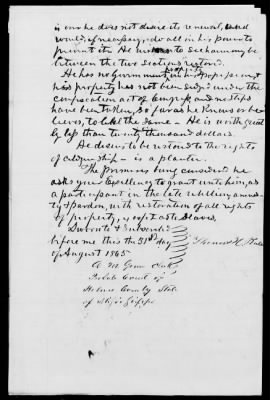 is one he does not desire its renewal, and
would, if necessary, do all in his power to
prevent it. He harmony
between the two sections restored.
He has no government property in his
his property has not been seized under the
confiscation act of Congress, and no steps
have been taken, so far as he knows or be
lieves, to libel the same — He is worth great
ly less than twenty thousand dollars.
He desires to be restored to the rights
of citizenship — is a planter.
The premises being considered he
asks your Excellency to grant unto him, as
a participant in the late rebellion, amnes
ty & pardon, with restoration of all rights
of property, except as to slaves.
Sworn to & subscribed
before me this the 31st day
of August 1865
Clerk
Probate Court of
Holmes County State
of Mississippi